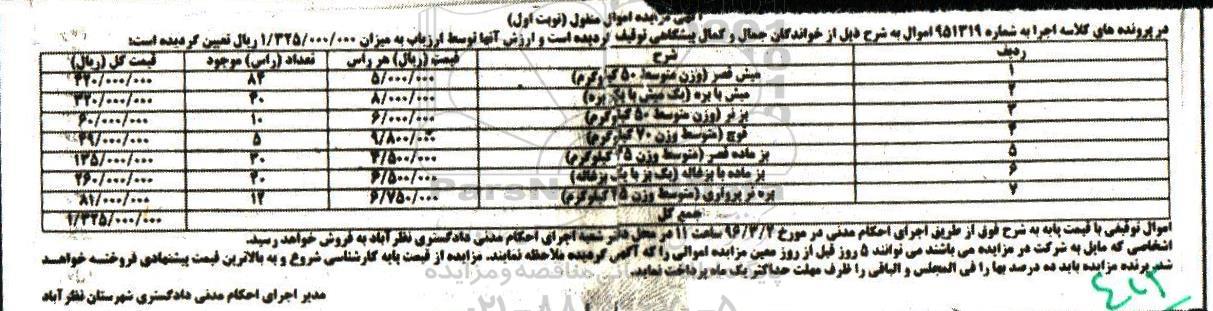 آگهی مزایده اموال منقول (نوبت اول)
در پرونده های کلاسه اجرا به شماره ۹۵۱۳۱۹ اموال به شرح ذیل از خواندگان جمال و کمال پیشگاهی توقیف گردیده است و ارزش آنها توسط ارزیاب به میزان ۱/۳۲۵/۰۰۰/۰۰۰ ریال تعیین گردیده است:
ردیف شرح قیمت (ریال) هر راس تعداد (راس) موجود قیمت کل (ریال)
۱ میش قصر (وزن متوسط ۵۰ کیلوگرم) ۵/۰۰۰/۰۰۰ ۸۴ ۴۲۰/۰۰۰/۰۰۰
۲ میش با بره (یک میش با یک بره) ۸/۰۰۰/۰۰۰ ۴۰ ۳۲۰/۰۰۰/۰۰۰
۳ بز نر (وزن متوسط ۵۰ کیلوگرم) ۶/۰۰۰/۰۰۰ ۱۰ ۶۰/۰۰۰/۰۰۰
۴ قوچ (متوسط وزن ۷۰ کیلوگرم) ۹/۸۰۰/۰۰۰ ۵ ۴۹/۰۰۰/۰۰۰
۵ بز ماده قصر (متوسط وزن ۴۵ کیلوگرم) ۴/۵۰۰/۰۰۰ ۳۰ ۱۳۵/۰۰۰/۰۰۰
۶ بز ماده با بزغاله (یک بز با یک بزغاله) ۶/۵۰۰/۰۰۰ ۴۰ ۲۶۰/۰۰۰/۰۰۰
۷ بره نر پرواری (متوسط وزن ۴۵ کیلوگرم) ۶/۷۵۰/۰۰۰ ۱۲ ۸۱/۰۰۰/۰۰۰
جمع کل ۱/۳۲۵/۰۰۰/۰۰۰
اموال توقیفی با قیمت پایه به شرح فوق از طریق اجرای احکام مدنی در مورخ ۹۶/۳/۲ ساعت ۱۱ در محل دفتر شعبه اجرای احکام مدنی دادگستری نظرآباد به فروش خواهد رسید.
اشخاصی که مایل به شرکت در مزایده می باشند می توانند ۵ روز قبل از روز معین مزایده اموالی را که آگهی گردیده ملاحظه نمایند. مزایده از قیمت پایه کارشناسی شروع و به بالاترین قیمت پیشنهادی فروخته خواهد
شد. برنده مزایده باید ده درصد بها را فی المجلس و الباقی را ظرف مهلت حداکثر یک ماه پرداخت نماید.
مدیر اجرای احکام مدنی دادگستری شهرستان نظرآباد